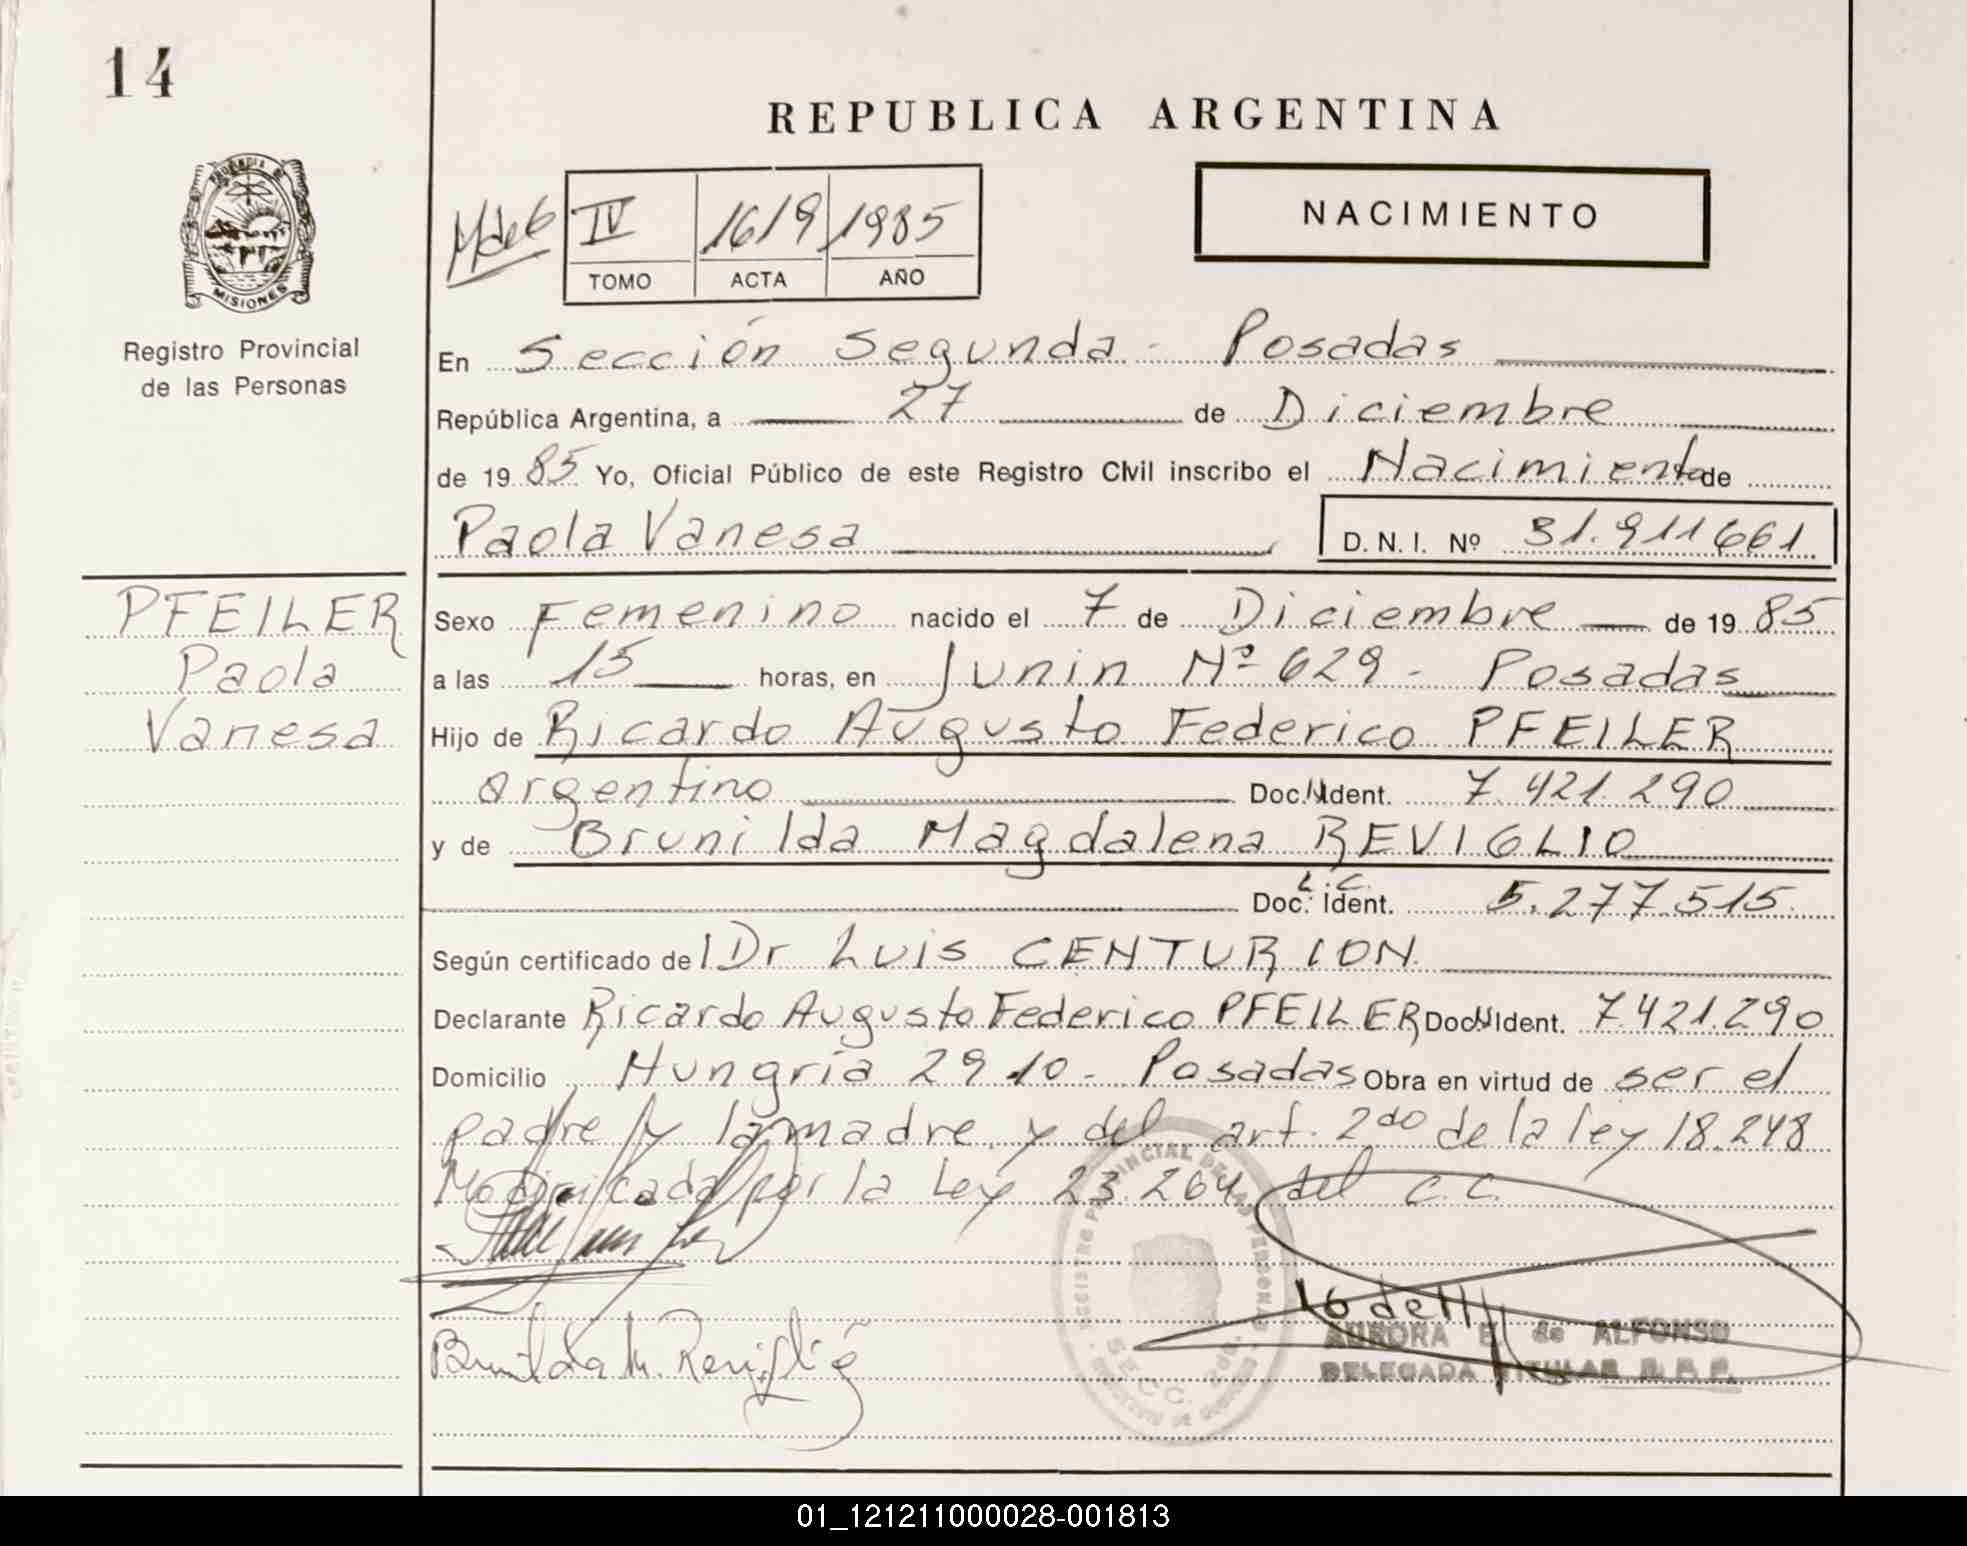 14
REPUBLICA ARGENTINA
PROVINCIA DE
MISIONES
Registro Provincial
de las Personas
IV 1619 1985
TOMO ACTA AÑO
NACIMIENTO
En Sección Segunda - Posadas
República Argentina, a 27 de Diciembre
de 1985 Yo, Oficial Público de este Registro Civil inscribo el Nacimiento de
Paola Vanesa D.N.I. Nº 31.911661
PFEILER
Paola
Vanesa
Sexo Femenino nacido el 7 de Diciembre de 1985
a las 15 horas, en Junin Nº 629 - Posadas
Hijo de Ricardo Augusto Federico PFEILER
argentino Doc. Ident. 7.421.290
y de Brunilda Magdalena REVIGLIO
L.C.
Doc. Ident. 5.277.515
Según certificado del Dr Luis CENTURION
Declarante Ricardo Augusto Federico PFEILER Doc. Ident. 7.421.290
Domicilio Hungría 2910 - Posadas Obra en virtud de ser el
padre y la madre y del art. 2do de la ley 18.248
Modificada por la Ley 23.264 del C.C.
REGISTRO PROVINCIAL DE LAS PERSONAS
SECC. 2da.
AURORA E. de ALFONSO
DELEGADA TITULAR R.P.P.
Brunilda M. Reviglio
01_121211000028-001813